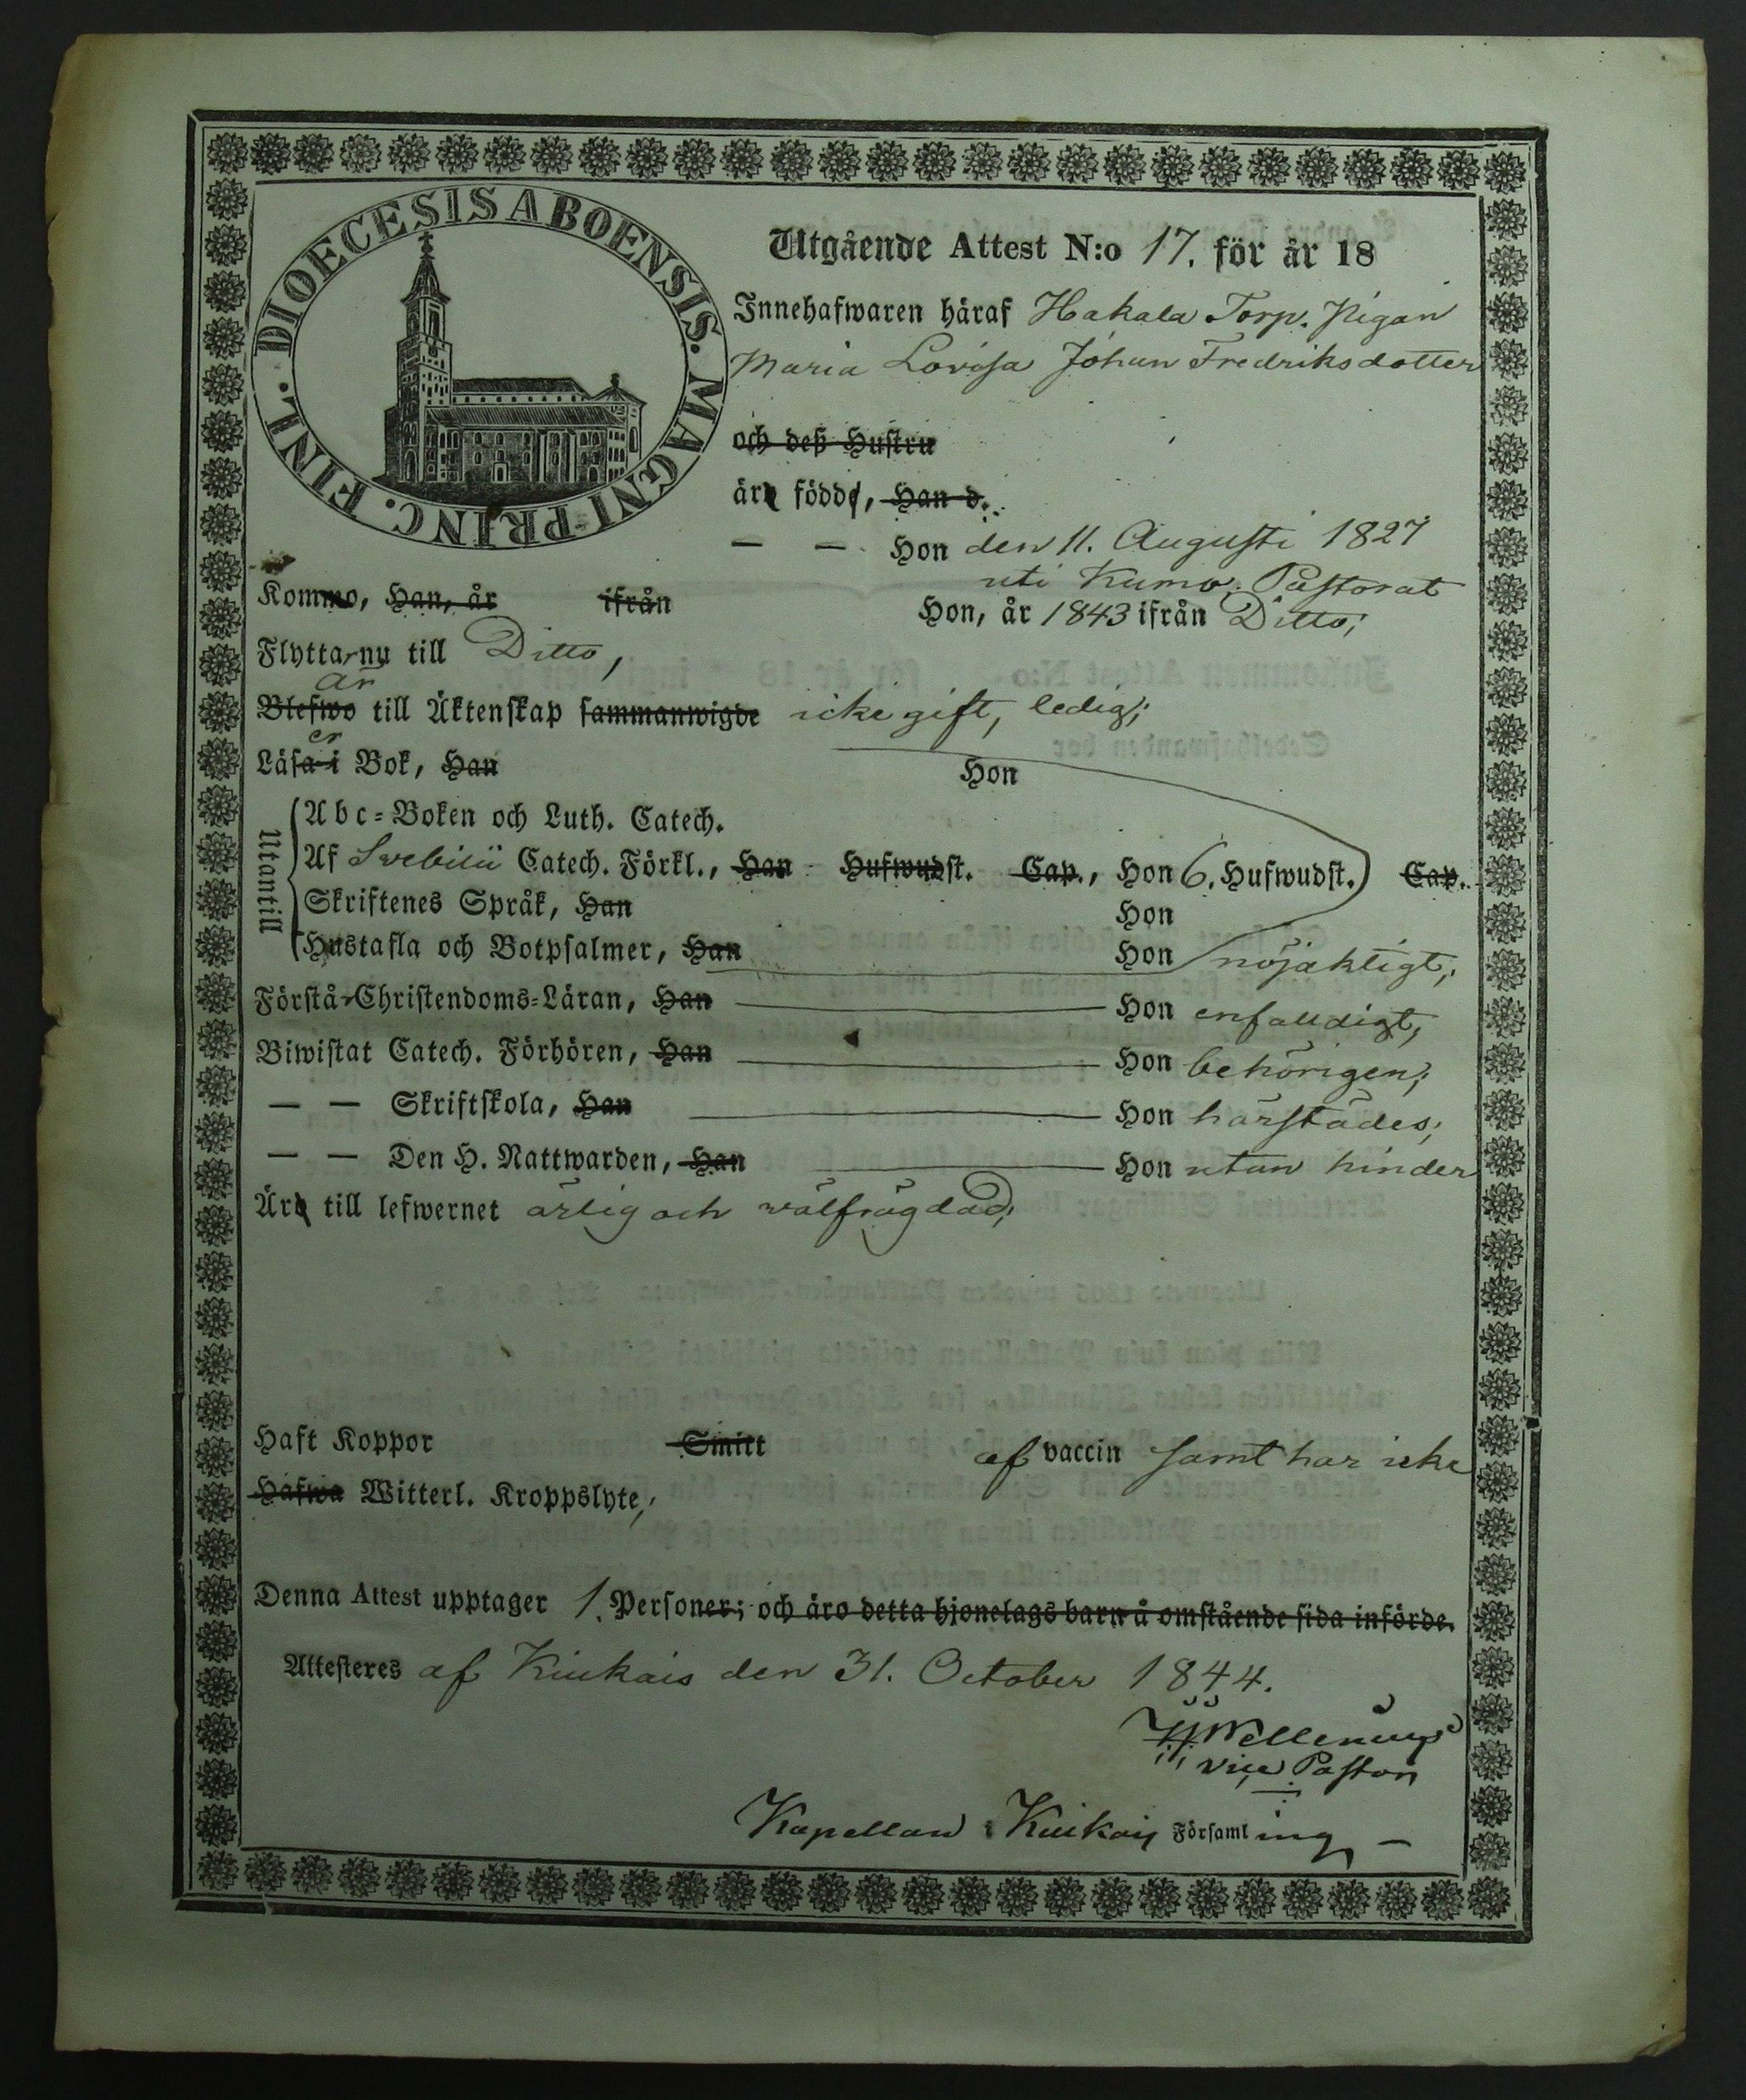 DIOECESIS ABOENSIS. MAGNI PRINC. FINL.
Utgående Attest N:o 17. för år 18
Innehafwaren häraf Hakala Torp. Pigan
Maria Lovisa Johan Fredriksdotter
och deß Hustru
äro födde, Han d.
— — Hon den 11. Augusti 1827
uti Kumo Pastorat
Kommo, Han, år ifrån Hon, år 1843 ifrån Ditto;
Flytta nu till Ditto,
är
Blefwo till Äktenskap sammanwigde icke gift, ledig;
er
Läsa i Bok, Han Hon
Utantill
Abc-Boken och Luth. Catech.
Af Svebilii Catech. Förkl., Han Hufwudst. Cap., Hon 6. Hufwudst. Cap.
Skriftenes Språk, Han Hon
Hustafla och Botpsalmer, Han Hon nöjaktigt;
Förstå Christendoms-Läran, Han Hon enfalldigt,
Biwistat Catech. Förhören, Han Hon behörigen;
— — Skriftskola, Han Hon härstädes;
— — Den H. Nattwarden, Han Hon utan hinder
Äro till lefwernet ärlig och välfrägdad;
Haft Koppor Smitt af vaccin samt har icke
Hafwa Witterl. Kroppslyte;
Denna Attest upptager 1. Personer; och äro detta hjonelags barn å omstående sida införde.
Attesteres af Kiukais den 31. October 1844.
vice Pastor
Kapellan i Kiukais Församling —